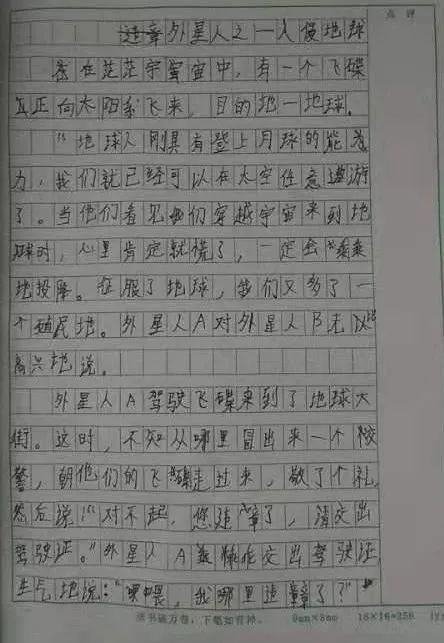 点评
违章外星人之一入侵地球
在茫茫宇宙中，有一个飞碟
正向太阳系飞来，目的地—地球。
“地球人刚具有登上月球的能
力，我们就已经可以在太空任意遨游
了。当他们看见我们穿越宇宙来到地
球时，心里肯定就慌了，一定会乖乖
地投降。征服了地球，我们又多了一
个殖民地。外星人A对外星人B
高兴地说。
外星人A驾驶飞碟来到了地球大
街。这时，不知从哪里冒出来一个校
警，朝他们的飞碟走过来，敬了个礼，
然后说：“对不起，您违章了，请交出
驾驶证。”外星人A交出驾驶证
生气地说：“喂喂，我哪里违章了？”
读书破万卷，下笔如有神。 9mm×8mm 18×16=288